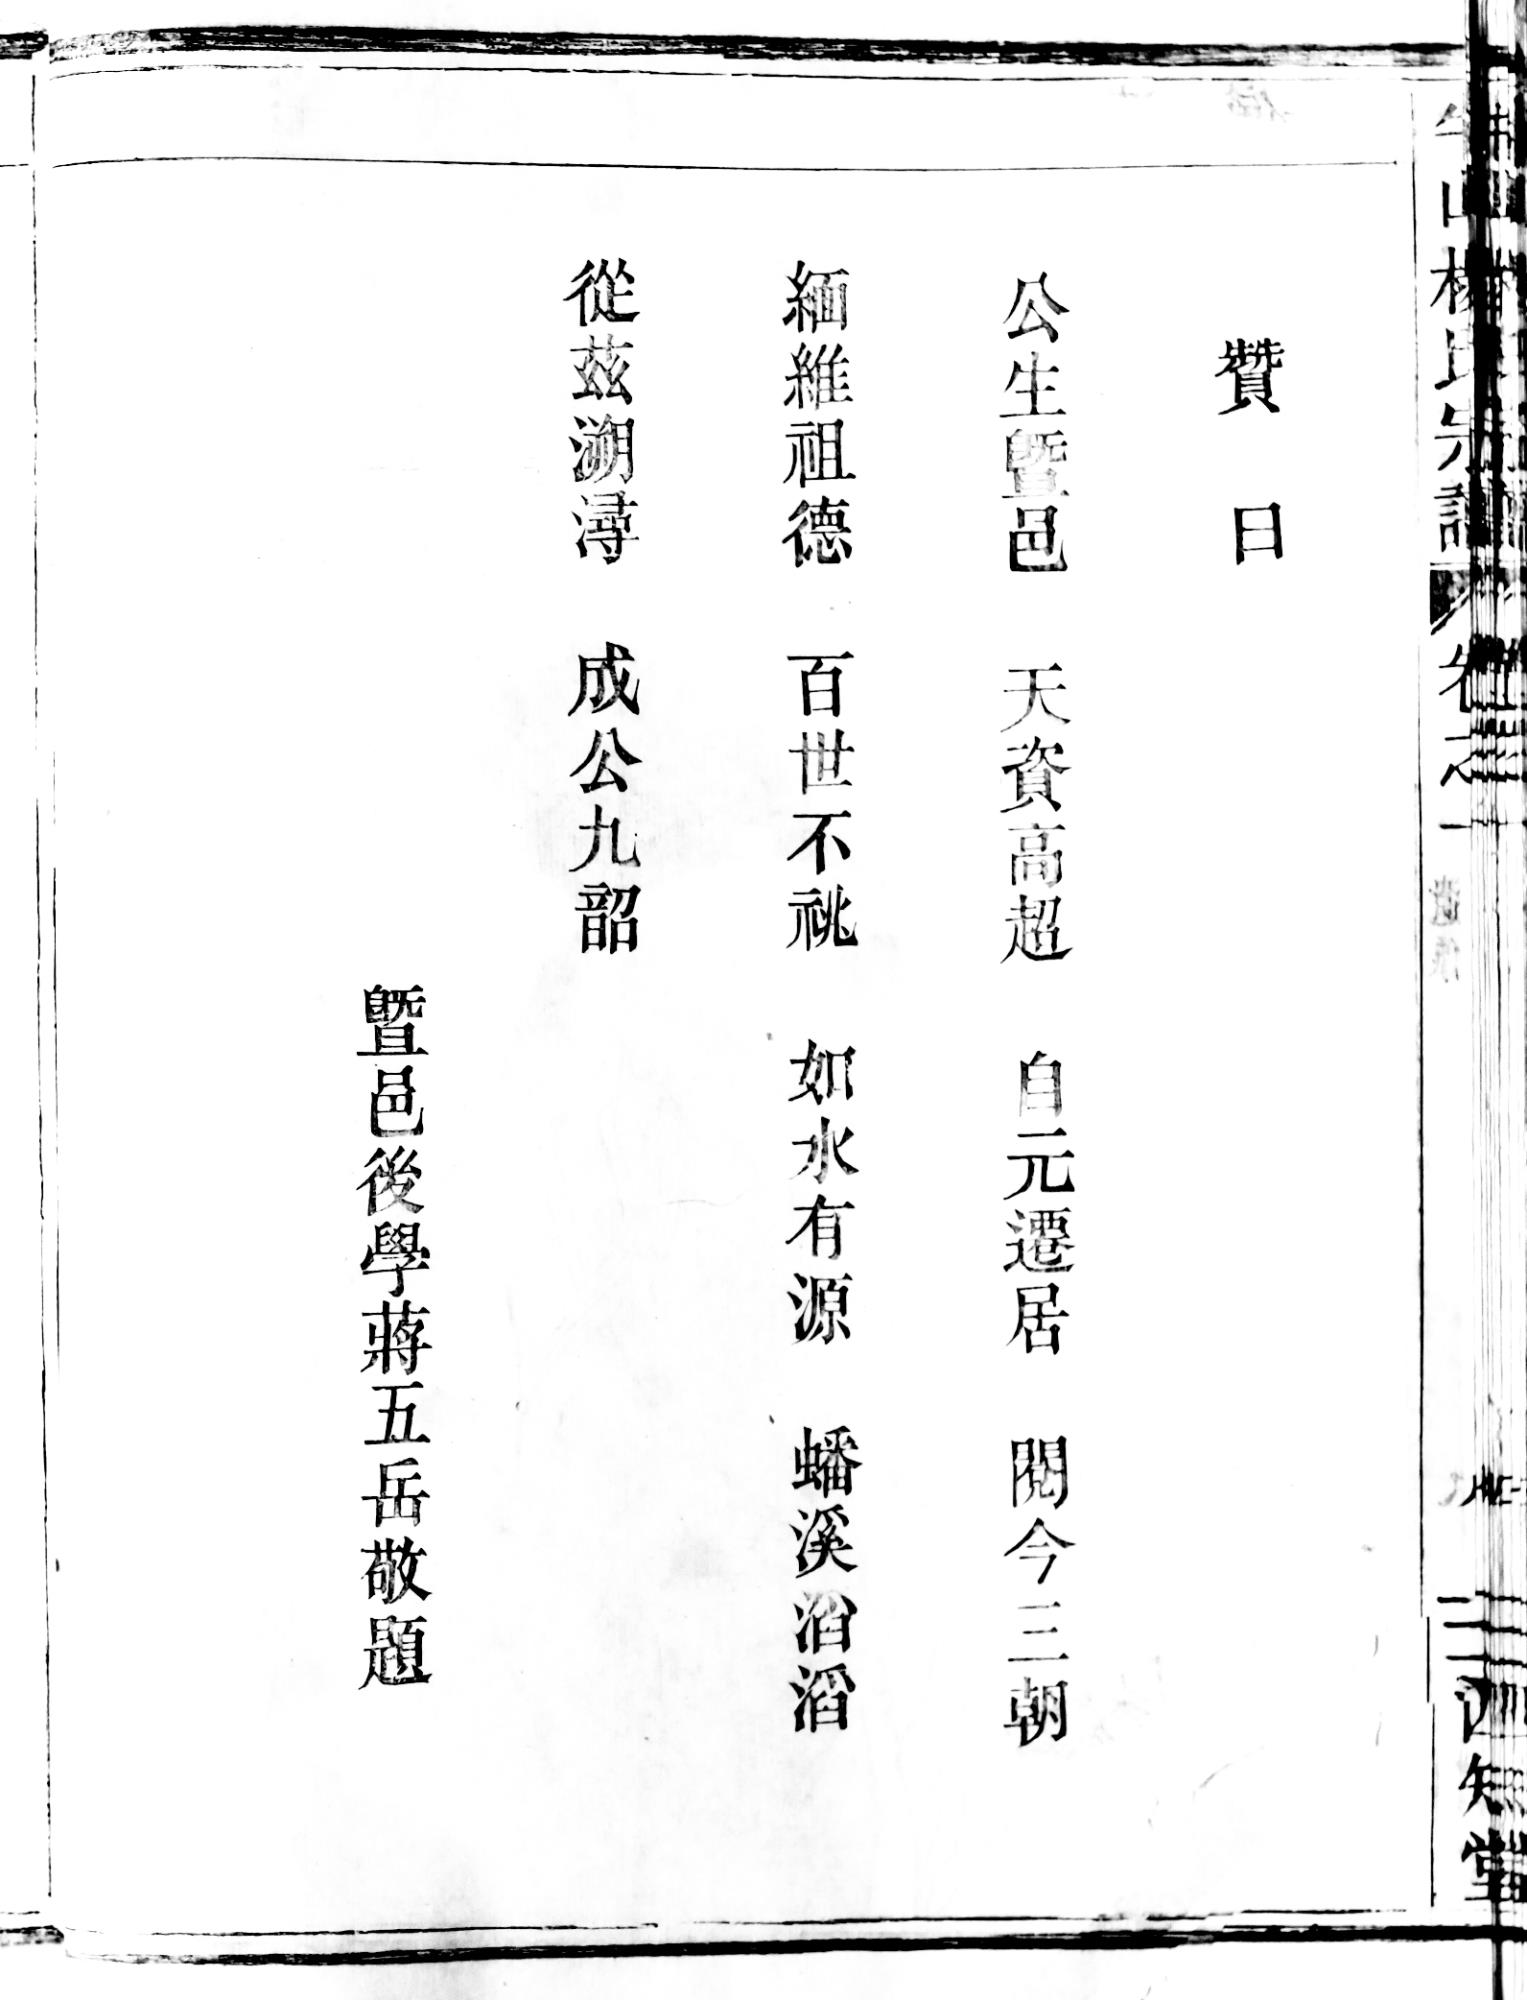 贊曰
公生暨邑　天資高超　自元遷居　閱今三朝
緬維祖德　百世不祧　如水有源　蟠溪滔滔
從茲溯潯　成公九韶
暨邑後學蔣五岳敬題
山楊氏宗譜　卷之一
四知堂